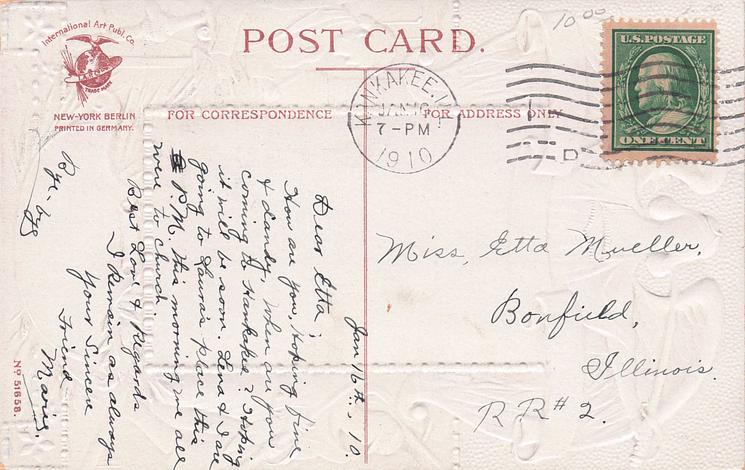 International Art Publ. Co.
TRADE MARK
NEW-YORK BERLIN
PRINTED IN GERMANY.
POST CARD.
10 00
KANKAKEE, I
JAN 16
7-PM
1910
D
U.S. POSTAGE
ONE CENT
FOR CORRESPONDENCE
FOR ADDRESS ONLY
Jan 16th., 10.
Dear Etta;
How are you, hoping fine
& dandy, When are you
coming to Kankakee? Hoping
it will be soon. Lena & I are
going to Laura's place this
P.M. this morning we all
were to church.
Best Love & Regards
I Remain as always
Your Sincere
Friend
Marie.
Bye-bye
Miss, Etta Mueller,
Bonfield,
Illinois.
R R # 2.
No 51658.